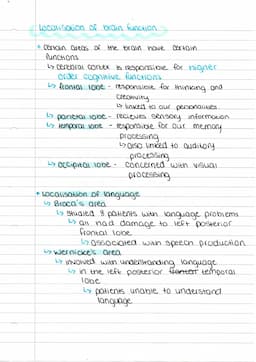 Localisation of brain function
• Certain areas of the brain have certain
functions
↳ cerebral cortex is responsible for higher
order cognitive functions
↳ frontal lobe - responsible for thinking and
creativity
↳ linked to our personalities
↳ parietal lobe - recieves sensory information
↳ temporal lobe - responsible for our memory
processing
↳ also linked to auditory
processing
↳ occipital lobe - concerned with visual
processing
• Localisation of language
↳ Broca's area
↳ studied 8 patients with language problems
↳ all had damage to left posterior
frontal lobe
↳ associated with speech production
↳ Wernicke's area
↳ involved with understanding language
↳ in the left posterior temporal
lobe
↳ patients unable to understand
language